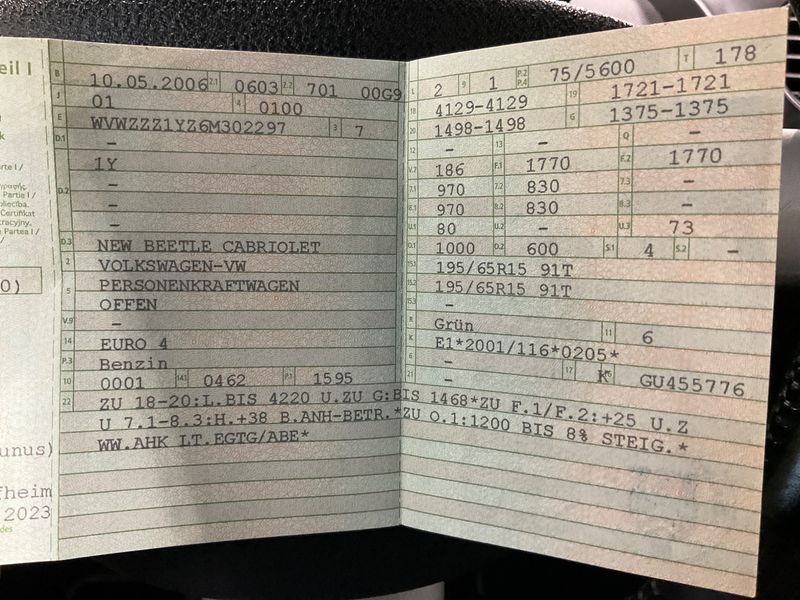 eil I
B 10.05.2006 2.1 0603 2.2 701 00G9
J 01 4 0100
E WVWZZZ1YZ6M302297 3 7
D.1 –
1Y
D.2 –
–
–
D.3 NEW BEETLE CABRIOLET
2 VOLKSWAGEN-VW
5 PERSONENKRAFTWAGEN
OFFEN
V.9 –
14 EURO 4
P.3 Benzin
10 0001 14.1 0462 P.1 1595
L 2 9 1 P.2 P.4 75/5600 T 178
18 4129-4129 19 1721-1721
20 1498-1498 G 1375-1375
12 – 13 – Q –
V.7 186 F.1 1770 F.2 1770
7.1 970 7.2 830 7.3 –
8.1 970 8.2 830 8.3 –
U.1 80 U.2 – U.3 73
O.1 1000 O.2 600 S.1 4 S.2 –
15.1 195/65R15 91T
15.2 195/65R15 91T
15.3 –
R Grün 11 6
K E1*2001/116*0205*
6 – 17 K 16 GU455776
21 –
22 ZU 18-20:L.BIS 4220 U.ZU G:BIS 1468*ZU F.1/F.2:+25 U.Z
U 7.1-8.3:H.+38 B.ANH-BETR.*ZU O.1:1200 BIS 8% STEIG.*
WW.AHK LT.EGTG/ABE*
rte I /
Partie I /
Certifikat
Partea I /
0)
unus)
fheim
2023
des